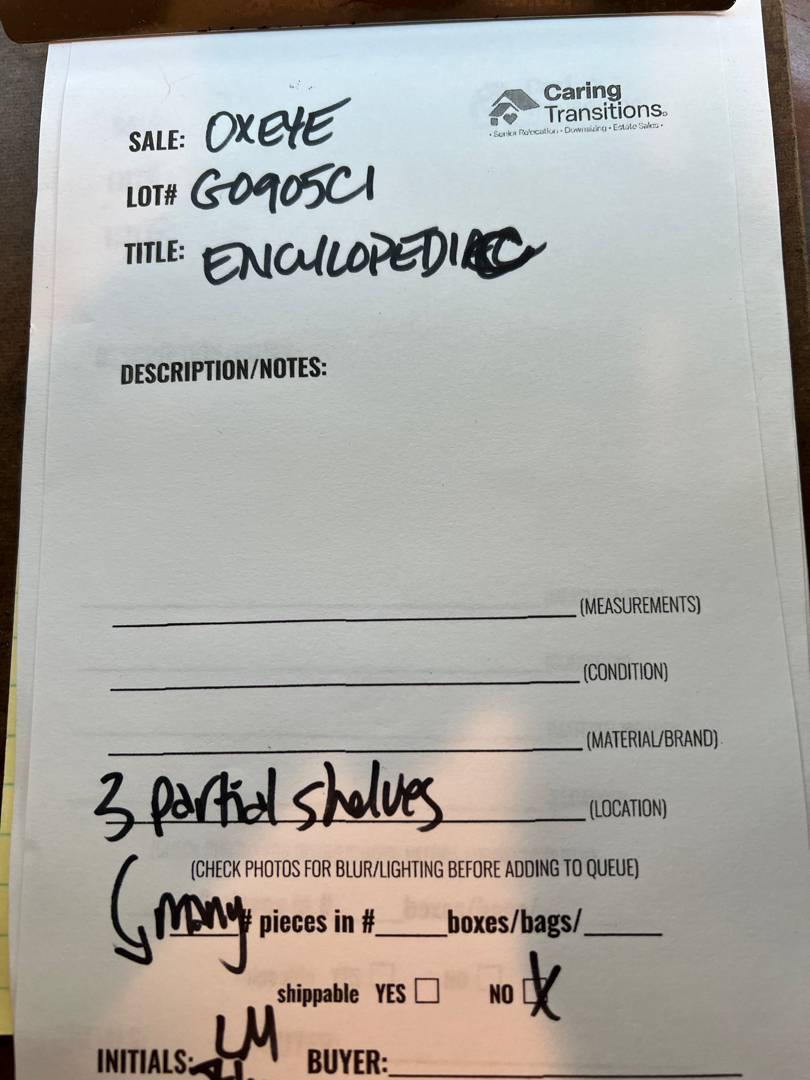 Caring
Transitions®
• Senior Relocation • Downsizing • Estate Sales •
SALE: OXEYE
LOT# G0905C1
TITLE: ENCYLOPEDIA
DESCRIPTION/NOTES:
(MEASUREMENTS)
(CONDITION)
(MATERIAL/BRAND)
3 partial shelves (LOCATION)
(CHECK PHOTOS FOR BLUR/LIGHTING BEFORE ADDING TO QUEUE)
many # pieces in #_____boxes/bags/_____
shippable YES ☐ NO ☒
INITIALS: LM BUYER: